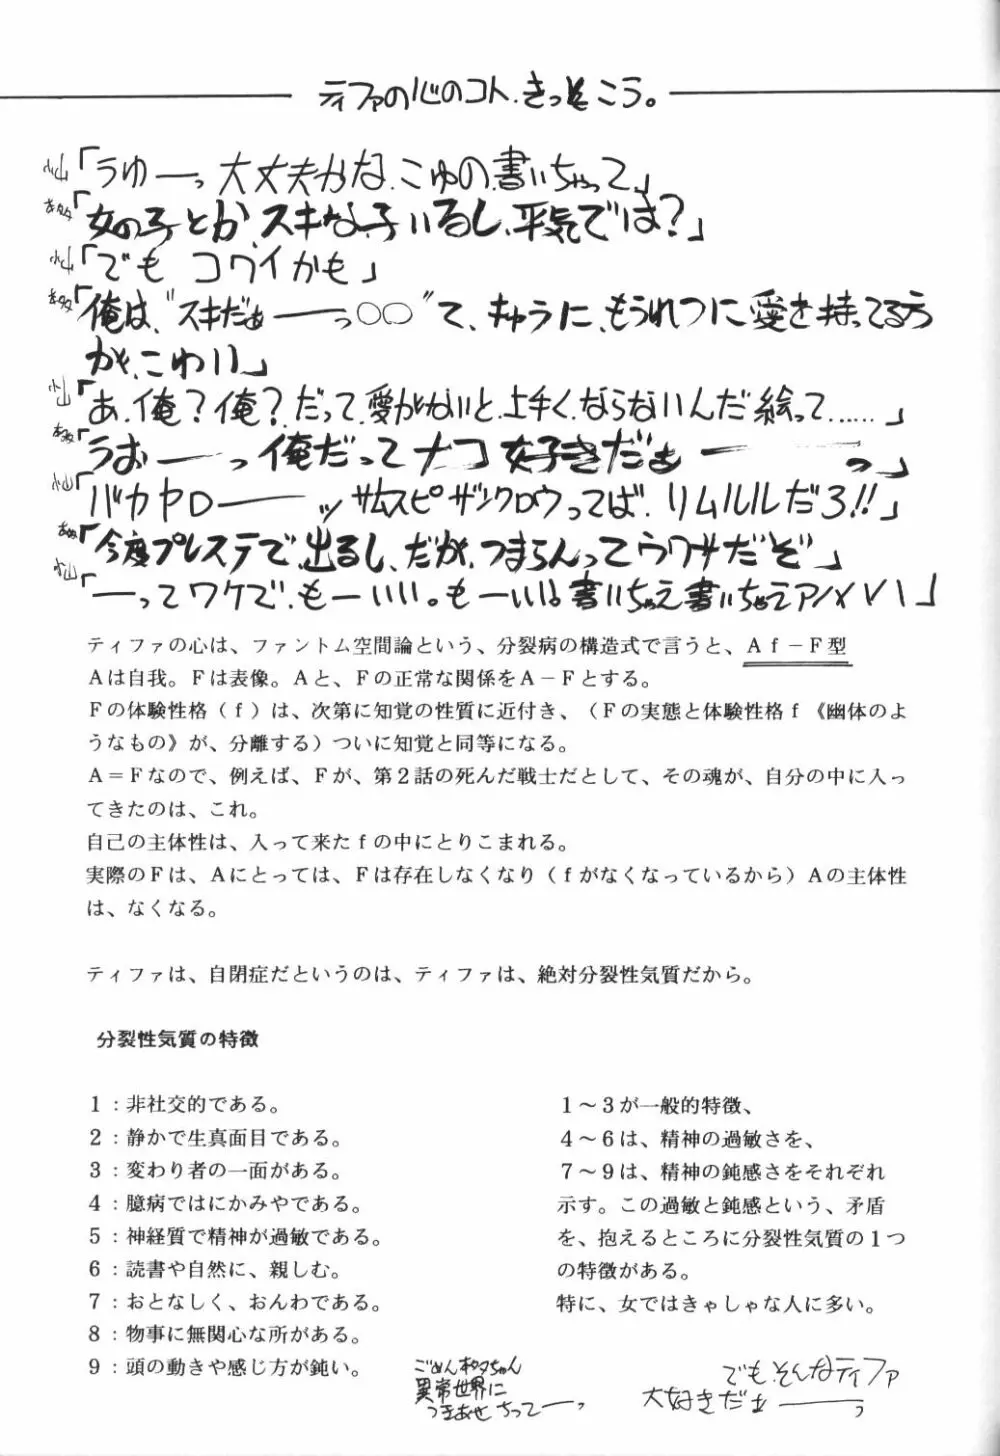 ティファの心のコト.きっとこう。
小山「うゆーっ大丈夫かな.こゆの書いちゃって」
「女の子とか、スキな子いるし、平気では？」
小山「でも コワイかも」
「俺は、"スキだぁーーっ○○"て、きゅうに、もうれつに愛を持ってる方
が、こわい」
小山「あ.俺？俺？だって、愛がないと上手く、ならないんだ絵って……」
「うおーーっ俺だってナコ好きだぁーーっ」
小山「バカヤローーッサムスピザンクロウってば、リムルルだろ!!」
「今度プレステで、出るし、だが、つまらんってウワサだぞ」
小山「ーってワケで、もーいい。もーいい。書いちゃえ書いちゃえアハハハ」
ティファの心は、ファントム空間論という、分裂病の構造式で言うと、Ａｆ－Ｆ型
Ａは自我。Ｆは表像。Ａと、Ｆの正常な関係をＡ－Ｆとする。
Ｆの体験性格（ｆ）は、次第に知覚の性質に近付き、（Ｆの実態と体験性格ｆ《幽体のよ
うなもの》が、分離する）ついに知覚と同等になる。
Ａ＝Ｆなので、例えば、Ｆが、第２話の死んだ戦士だとして、その魂が、自分の中に入っ
てきたのは、これ。
自己の主体性は、入って来たｆの中にとりこまれる。
実際のＦは、Ａにとっては、Ｆは存在しなくなり（ｆがなくなっているから）Ａの主体性
は、なくなる。
ティファは、自閉症だというのは、ティファは、絶対分裂性気質だから。
分裂性気質の特徴
１：非社交的である。
２：静かで生真面目である。
３：変わり者の一面がある。
４：臆病ではにかみやである。
５：神経質で精神が過敏である。
６：読書や自然に、親しむ。
７：おとなしく、おんわである。
８：物事に無関心な所がある。
９：頭の動きや感じ方が鈍い。
１～３が一般的特徴、
４～６は、精神の過敏さを、
７～９は、精神の鈍感さをそれぞれ
示す。この過敏と鈍感という、矛盾
を、抱えるところに分裂性気質の１つ
の特徴がある。
特に、女ではきゃしゃな人に多い。
ごめんねタちゃん
異常世界に
つきあせちってーっ
でも.そんなティファ
大好きだぁーーっ